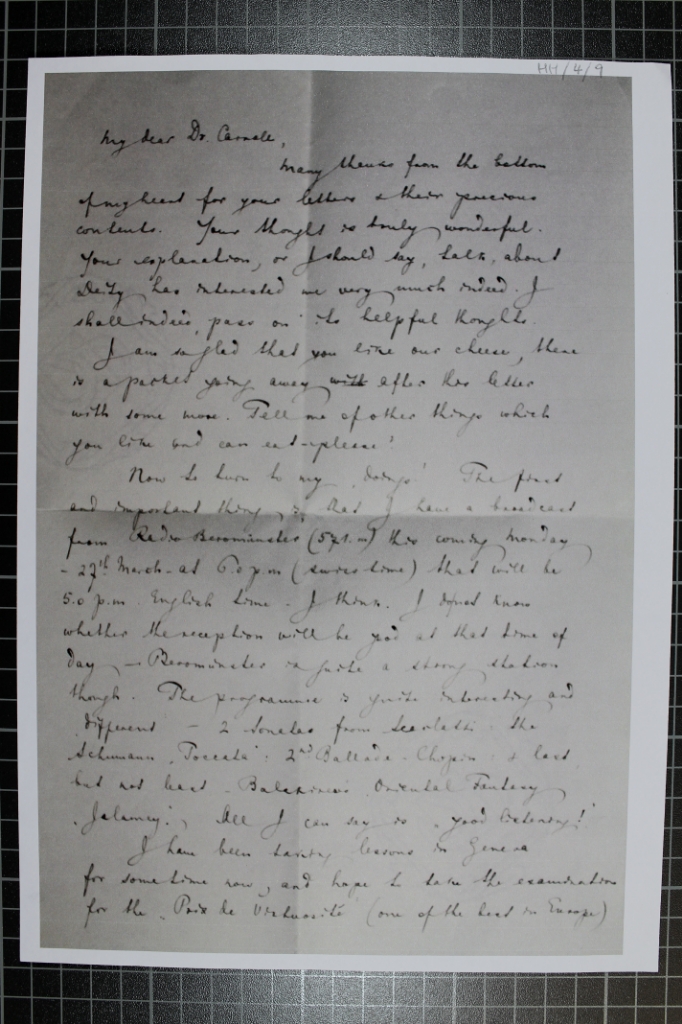 HH/4/9
My dear Dr. Carnelle,
Many thanks from the bottom
of my heart for your letters & their precious
contents. Your thought is truly wonderful.
Your explanation, or I should say, talk, about
Deity has interested me very much indeed. I
shall indeed, pass on its helpful thoughts.
I am so glad that you like our cheese, there
is a parcel going away with after this letter
with some more. Tell me of other things which
you like and can eat - please!
Now to turn to my doings! The first
and important thing is that I have a broadcast
from Radio Beromünster (571.m) this coming Monday
- 27th March - at 6.0 pm (swiss time) that will be
5.0 p.m. English time - I think. I do not know
whether the reception will be good at that time of
day - Beromünster is quite a strong station
though. The programme is quite interesting and
different - 2 Sonatas from Scarlatti: the
Schumann "Toccata": 2nd Ballade - Chopin: & last
but not least - Balakirew's Oriental Fantasy
"Islamey". All I can say is "good listening!"
I have been taking lessons in Geneva
for some time now, and hope to take the examination
for the "Prix de Virtuosité (one of the best in Europe)